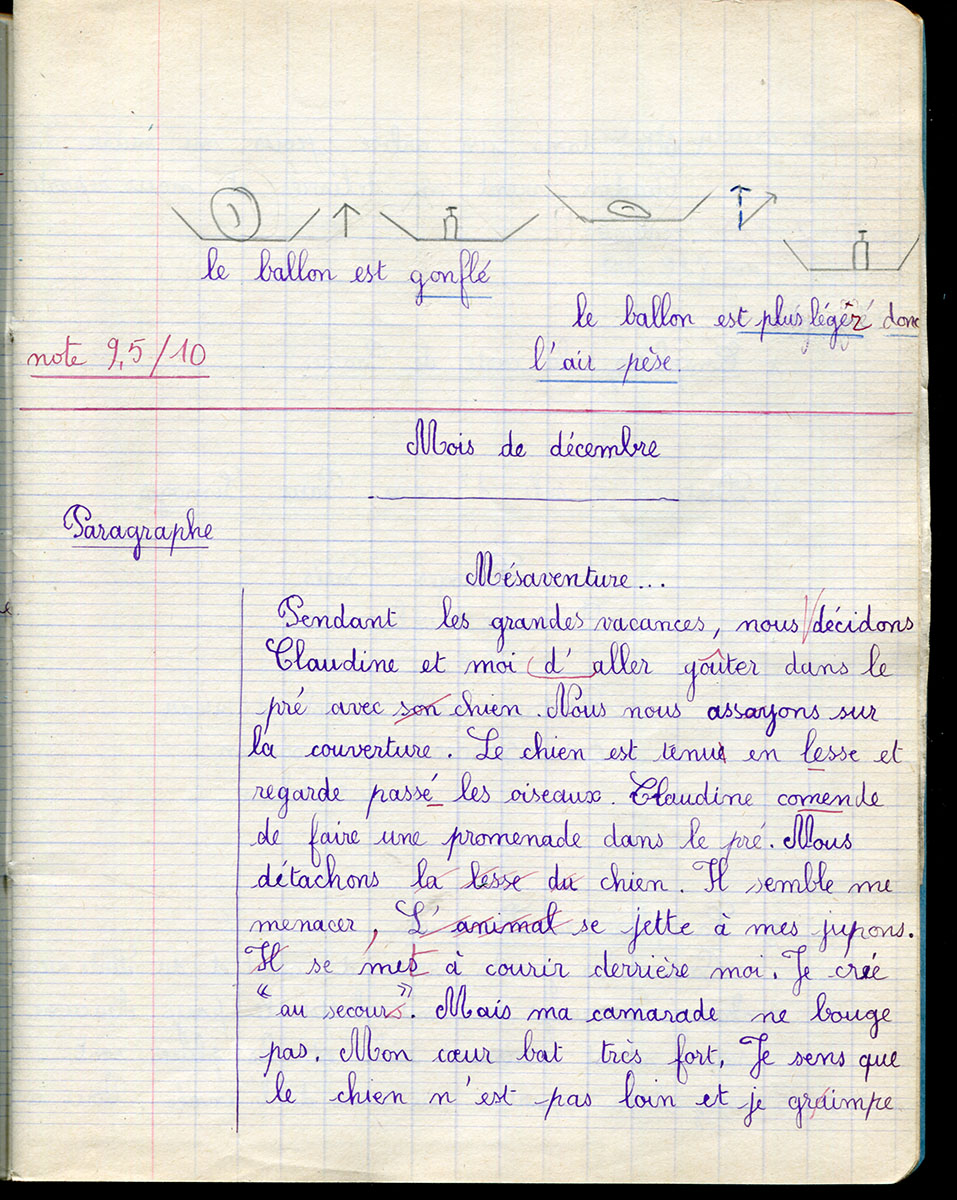 le ballon est gonflé
le ballon est plus légér donc
note 9,5/10
l'air pèse.
Mois de décembre
Paragraphe
Mésaventure...
Pendant les grandes vacances, nous décidons
Claudine et moi d'aller goûter dans le
pré avec son chien. Nous nous assayons sur
la couverture. Le chien est tenu en lesse et
regarde passé les oiseaux. Claudine comende
de faire une promenade dans le pré. Nous
détachons la lesse du chien. Il semble me
menacer, L'animal se jette à mes jupons.
Il se met à courir derrière moi. Je crie
"au secours". Mais ma camarade ne bouge
pas. Mon cœur bat très fort. Je sens que
le chien n'est pas loin et je graimpe